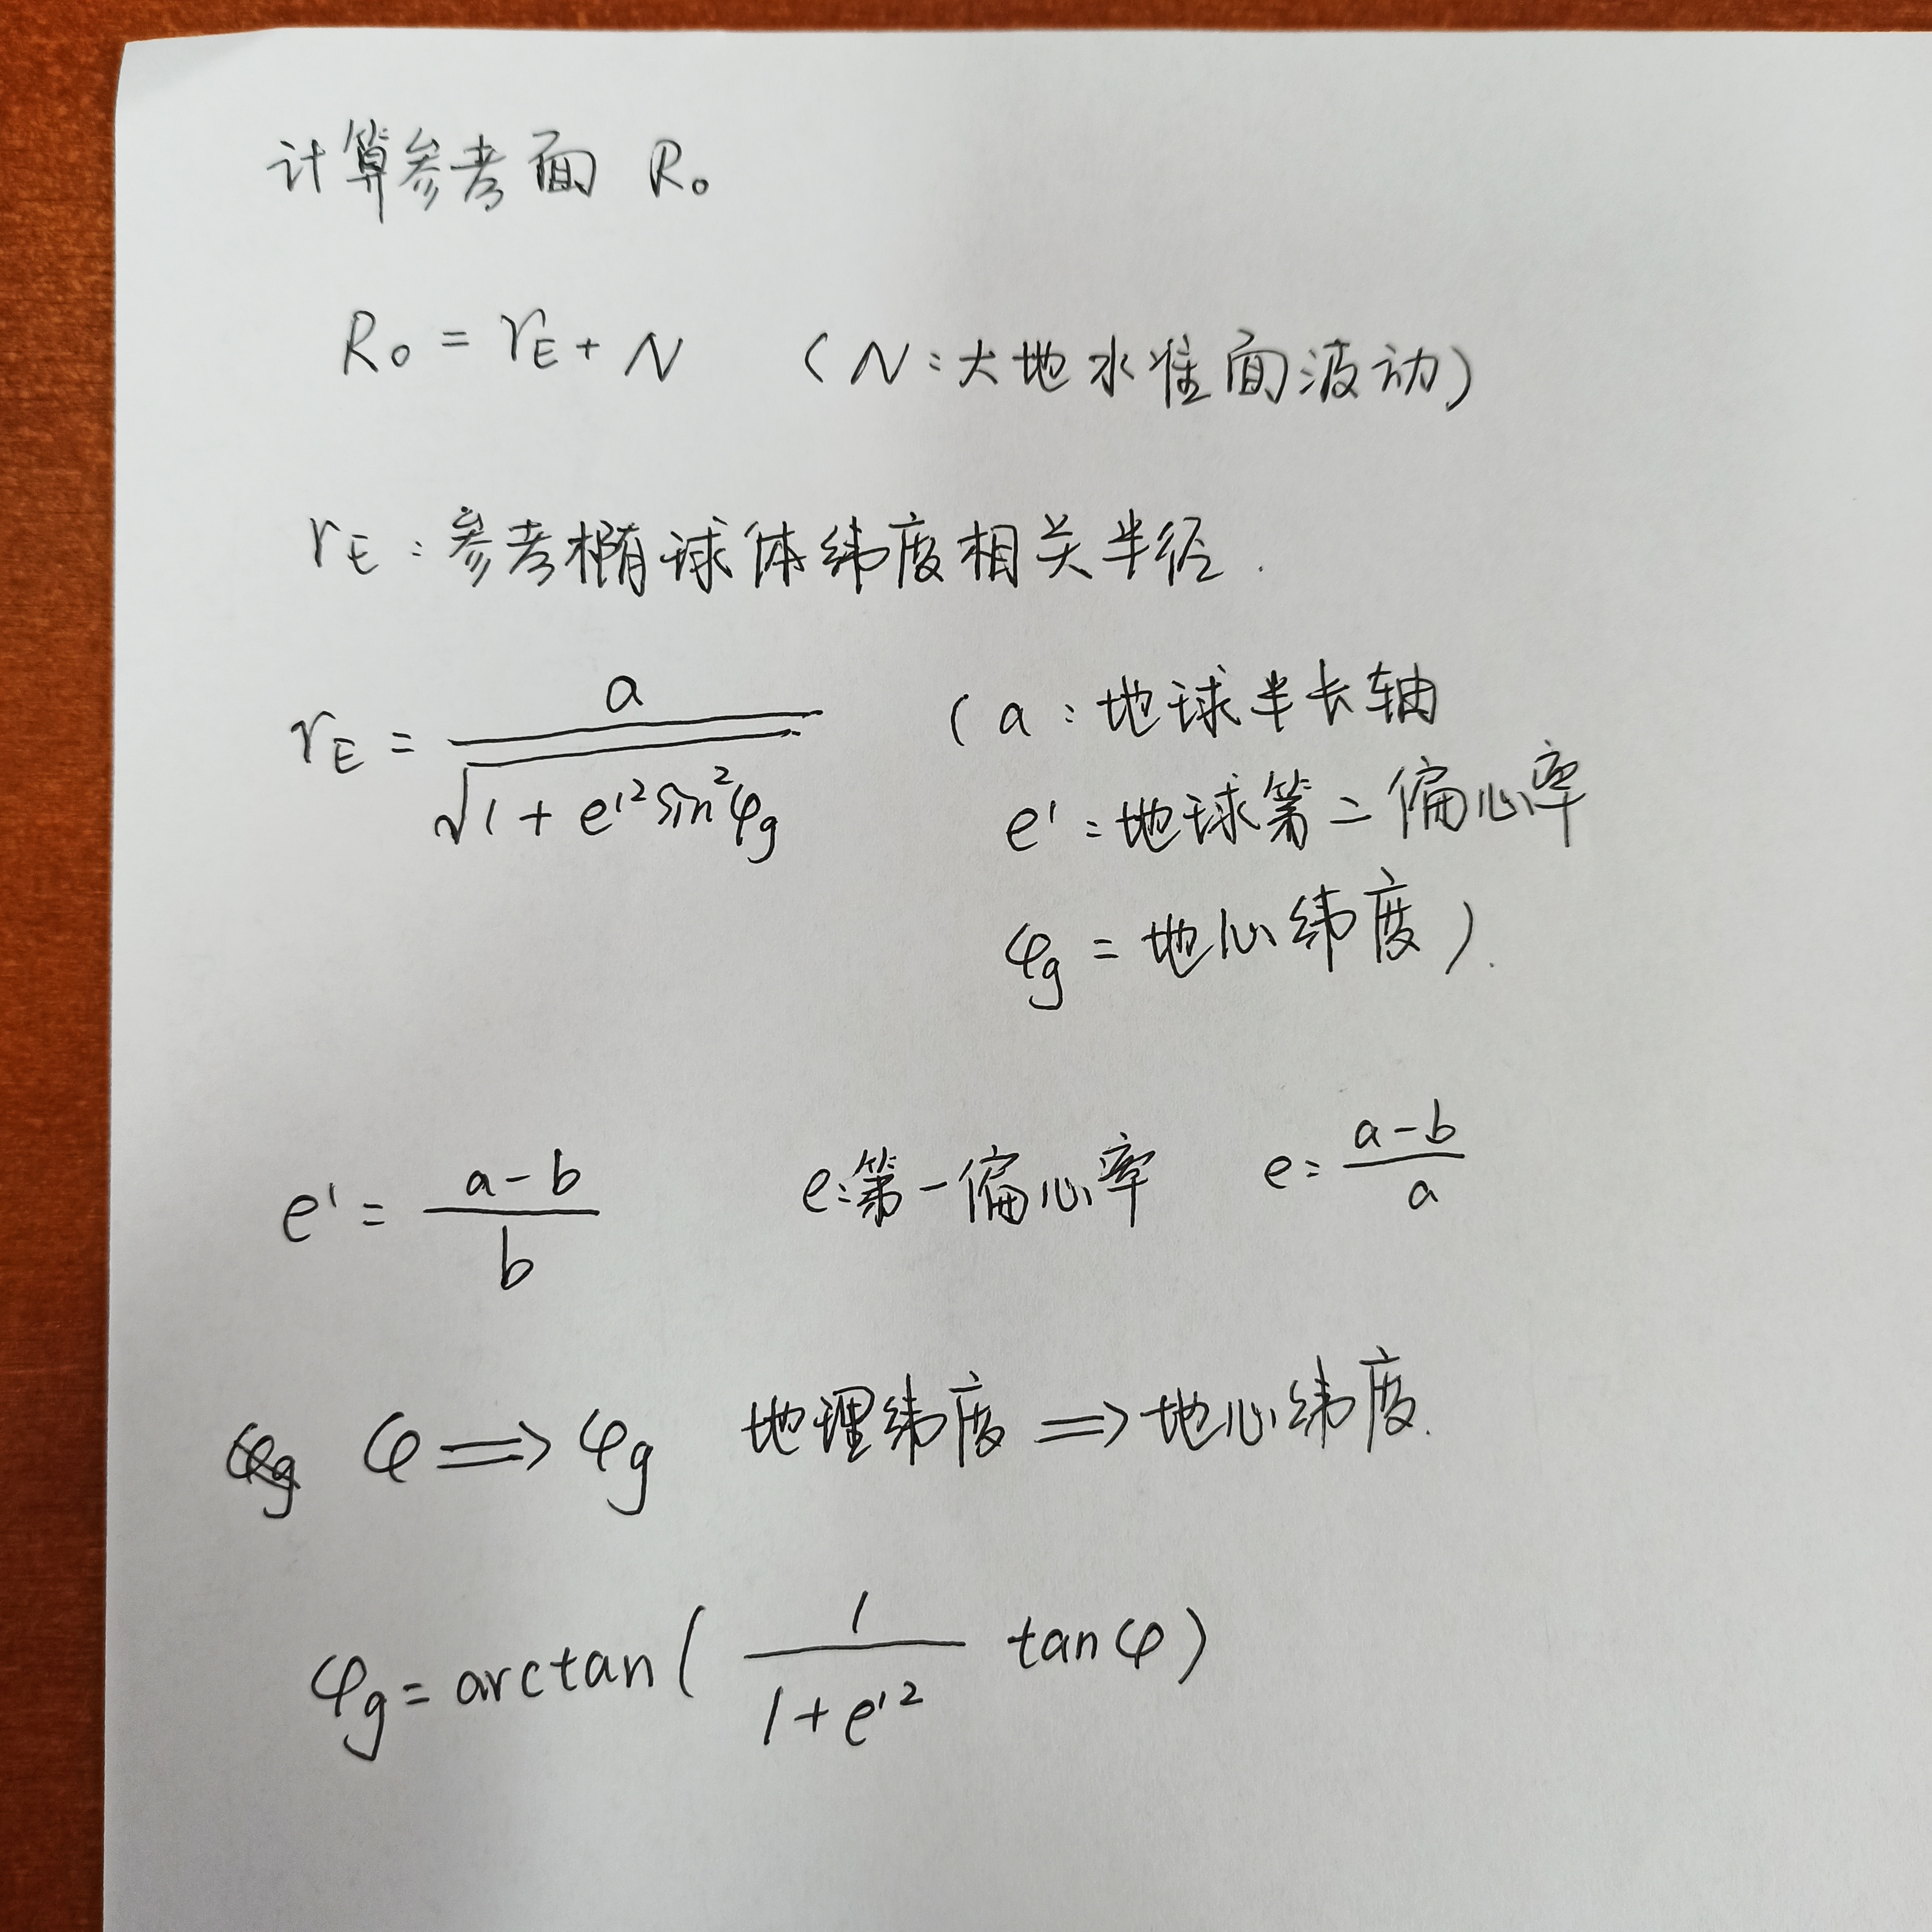 计算参考面 R₀
R₀ = r_E + N （N：大地水准面波动）
r_E：参考椭球体纬度相关半径.
r_E = a / √(1 + e'² sin²φ_g) （a：地球半长轴
e'：地球第二偏心率
φ_g = 地心纬度）.
e' = (a - b) / b e：第一偏心率 e = (a - b) / a
φ ⟹ φ_g 地理纬度 ⟹ 地心纬度.
φ_g = arctan( 1 / (1 + e'²) tanφ )